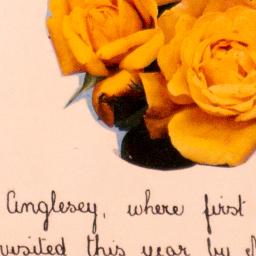 Anglesey, where first
visited this year by